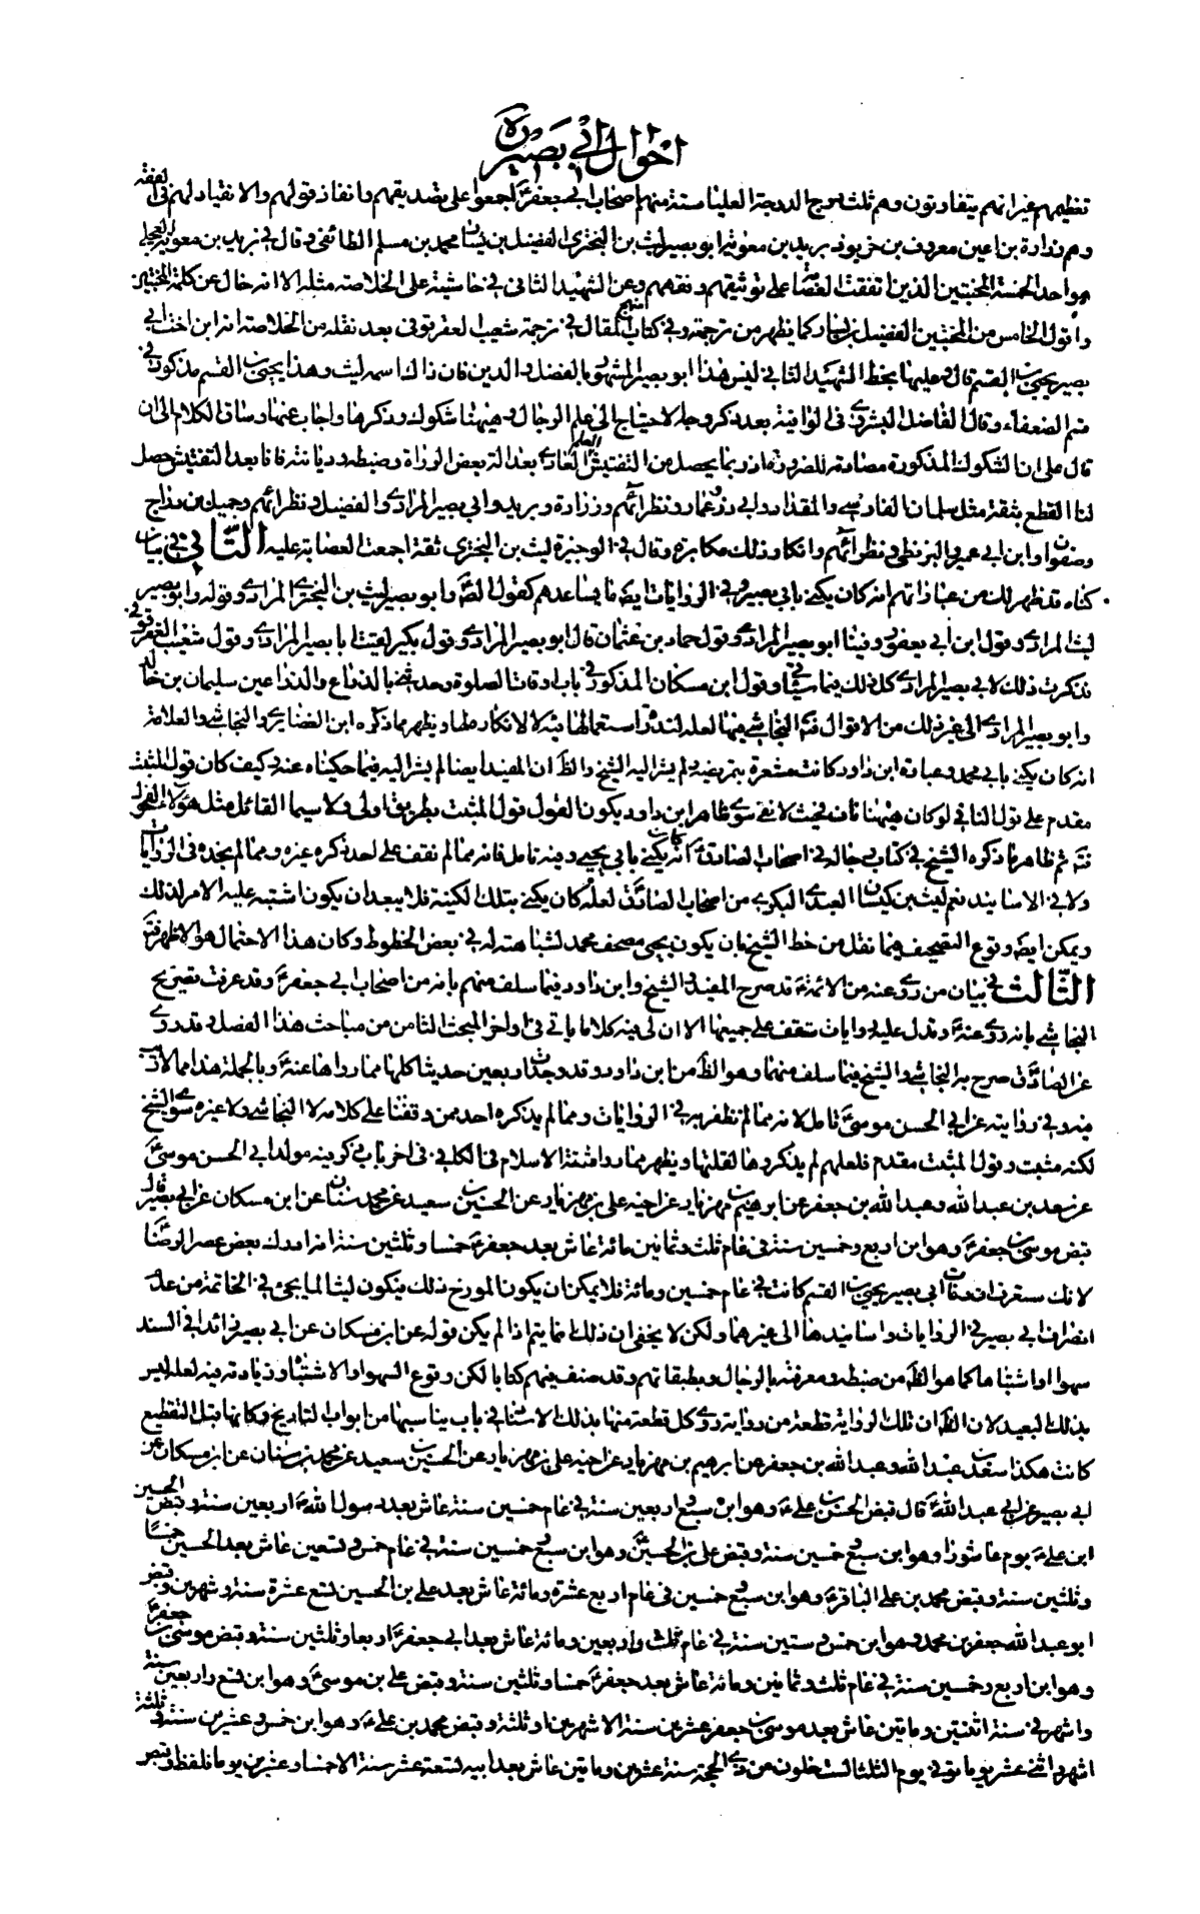 احوال ابي بصير ره
تعظيمهم غير انهم يتفاوتون وهم ثلث درج الدرجة العليا ستة منهم اصحاب ابي جعفر ع اجمعوا على تصديقهم وانفاذ قولهم والانقياد لهم في الفقه
وهم زرارة بن اعين معروف بن خربوذ بريد بن معوية ابو بصير ليث بن البختري الفضيل بن يسار محمد بن مسلم الطائفي وقال في بريد بن معوية العجلي
هو احد الخمسة المخبتين الذين اتفقت العصابة على توثيقهم وفقههم وعن الشهيد الثاني في حاشيته على الخلاصة مثله الا انه خال عن كلمة المخبتين
واقول الخامس من المخبتين الفضيل بن يسار كما يظهر من ترجمته وفي كتاب منهج المقال في ترجمة شعيب العقرقوفي بعد نقله من الخلاصة انه ابن اخت ابي
بصير يحيى بن القسم قال وعليها بخط الشهيد الثاني ليس هذا ابو بصير المشهور بالفضل والدين فان ذاك اسمه ليث وهذا يحيى بن القسم مذكور في
قسم الضعفاء وقال الفاضل البشروي في الوافية بعد ذكر وجه الاحتياج الى علم الرجال وههنا شكوك وذكرها واجاب عنها وساق الكلام الى ان
قال على ان الشكوك المذكورة مصادمة للضرورة اذ ربما يحصل من التفتيش العلم العادي بعدالة بعض الرواة وضبطه وديانته فانا بعد التفتيش حصل
لنا القطع بثقة مثل سلمان الفارسي والمقداد وابي ذر وعمار ونظرائهم وزرارة وبريد وابي بصير المرادي والفضيل ونظرائهم وجميل بن دراج
وصفوان وابن ابي عمير والبزنطي ونظرائهم وانكار ذلك مكابرة وقال في الوجيزة ليث بن البختري ثقة اجمعت العصابة عليه الثاني في بيان
كناه قد ظهر لك من عباراتهم انه كان يكنى بابي بصير وفي الروايات ايضا ما يساعدهم كقول الصه وابو بصير ليث بن البختري المرادي وقوله وابو بصير
ليث المرادي وقول ابن ابي يعفور وفينا ابو بصير المرادي وقول حماد بن عثمان قال ابو بصير المرادي وقول بكير لقيت ابا بصير المرادي وقول شعيب العقرقوفي
فذكرت ذلك لابي بصير المرادي كل ذلك فيما سياتي وقول ابن مسكان المذكور في باب اوقات الصلوة وحد القبا بالذراع والذراعين سليمان بن خالد
وابو بصير المرادي الى غير ذلك من الاقوال النجاشي فيها لعله لندرة استعمالها فيه لا لانكاره لها ويظهر مما ذكره ابن الغضايري والنجاشي والعلامة
انه كان يكنى بابي محمد وعبارة ابن داود كانت مشعرة بتمريضه ولم يشر اليه الشيخ والظ ان المفيد ايضا لم يشر اليه فيما حكيناه عنه وكيف كان قول المثبت
مقدم على قول النافي لو كان ههنا ناف بحيث لا نفي سوى ظاهر ابن داود يكون القول قول المثبت بطريق اولى ولا سيما القائل مثل هؤلاء الفحول
ثم ظاهر ما ذكره الشيخ في كتاب رجاله في اصحاب الصادق ع انه كان يكنى بابي يحيى وفيه تامل فانه مما لم نقف على احد ذكره غيره ومما لم نجده في الروايات
ولا في الاسانيد نعم ليث بن كيسان العبدي البكري من اصحاب الصادق ع لعله كان يكنى بتلك الكنية فلا يبعد ان يكون اشتبه عليه الامر لذلك
ويمكن ايضا وقوع التصحيف فيما نقل من خط الشيخ بان يكون يحيى مصحف محمد لشباهته له في بعض الخطوط وكان هذا الاحتمال هو الاظهر
الثالث في بيان من روى عنه من الائمة ع قد صرح المفيد والشيخ وابن داود فيما سلف منهم بانه من اصحاب ابي جعفر ع وقد عرفت تصريح
النجاشي بانه روى عنه ع وتدل عليه روايات ستقف على جميعها الا ان لي فيه كلاما ياتي في اواخر المبحث الثامن من مباحث هذا الفصل وقد روى
عن الصادق ع صرح به النجاشي والشيخ فيما سلف منهما وهو الظ من ابن داود وقد وجدت اربعين حديثا كلها مما رواها عنه ع وبالجملة هذا مما لا ريب
فيه وفي روايته عن ابي الحسن موسى ع تامل لانه مما لم نظفر به في الروايات ومما لم يذكره احد ممن وقفنا على كلامه لا النجاشي ولا غيره سوى الشيخ
لكنه مثبت وقول المثبت مقدم فلعلهم لم يذكروها لقلتها ويظهر مما رواه ثقة الاسلام في الكافي في اخر باب ذكر فيه مولد ابي الحسن موسى ع
عن سعد بن عبدالله وعبدالله بن جعفر عن ابرهيم بن مهزيار عن اخيه علي بن مهزيار عن الحسين بن سعيد عن محمد بن سنان عن ابن مسكان عن ابي بصير قال
قبض موسى بن جعفر ع وهو ابن اربع وخمسين سنة في عام ثلث وثمانين ومائة عاش بعد جعفر ع خمسا وثلثين سنة انه ادرك بعض عصر الرضا ع
لانك ستعرف ان وفات ابي بصير يحيى بن القسم كانت في عام خمسين ومائة فلا يمكن ان يكون المورخ ذلك فيكون ليثا لما يجئ في الخاتمة من عدم
انصراف ابي بصير في الروايات واسانيدها الى غيرهما ولكن لا يخفى ان ذلك انما يتم اذا لم يكن قوله عن ابن مسكان عن ابي بصير زائدا في السند
سهوا او اشتباها كما هو الظ من ضبطه ومعرفته بالرجال وبطبقاتهم وقد صنف فيهم كتابا لكن وقوع السهو او الاشتباه وزيادته فيه لعله ليس
بذلك البعيد لان الظ ان تلك الرواية قطعة من رواية روى كل قطعة منها بذلك الاسناد في باب يناسبها من ابواب التاريخ وكانها قبل التقطيع
كانت هكذا سعد بن عبدالله وعبدالله بن جعفر عن ابرهيم بن مهزيار عن اخيه علي بن مهزيار عن الحسين بن سعيد عن محمد بن سنان عن ابن مسكان عن
ابي بصير عن ابي عبدالله ع قال قبض الحسن بن علي ع وهو ابن سبع واربعين سنة في عام خمسين سنة عاش بعد رسول الله ص اربعين سنة وقبض الحسين
ابن علي ع يوم عاشورا وهو ابن سبع وخمسين سنة وقبض علي بن الحسين ع وهو ابن سبع وخمسين سنة في عام خمس وتسعين عاش بعد الحسين خمسا
وثلثين سنة وقبض محمد بن علي الباقر ع وهو ابن سبع وخمسين في عام اربع عشرة ومائة عاش بعد علي بن الحسين تسع عشرة سنة وشهرين وقبض
ابو عبدالله جعفر بن محمد وهو ابن خمس وستين سنة في عام ثلث واربعين ومائة عاش بعد ابي جعفر ع اربعا وثلثين سنة وقبض موسى بن جعفر ع
وهو ابن اربع وخمسين سنة في عام ثلث وثمانين ومائة عاش بعد جعفر ع خمسا وثلثين سنة وقبض علي بن موسى ع وهو ابن تسع واربعين سنة
واشهر في سنة اثنتين ومايتين عاش بعد موسى بن جعفر عشرين سنة الا شهرين او ثلثة وقبض محمد بن علي ع وهو ابن خمس وعشرين سنة وثلثة
اشهر واثنى عشر يوما توفي يوم الثلثا لست خلون من ذي الحجة سنة عشرين ومايتين عاش بعد ابيه تسعة عشر سنة الا خمسا وعشرين يوما فلفظ وقبض